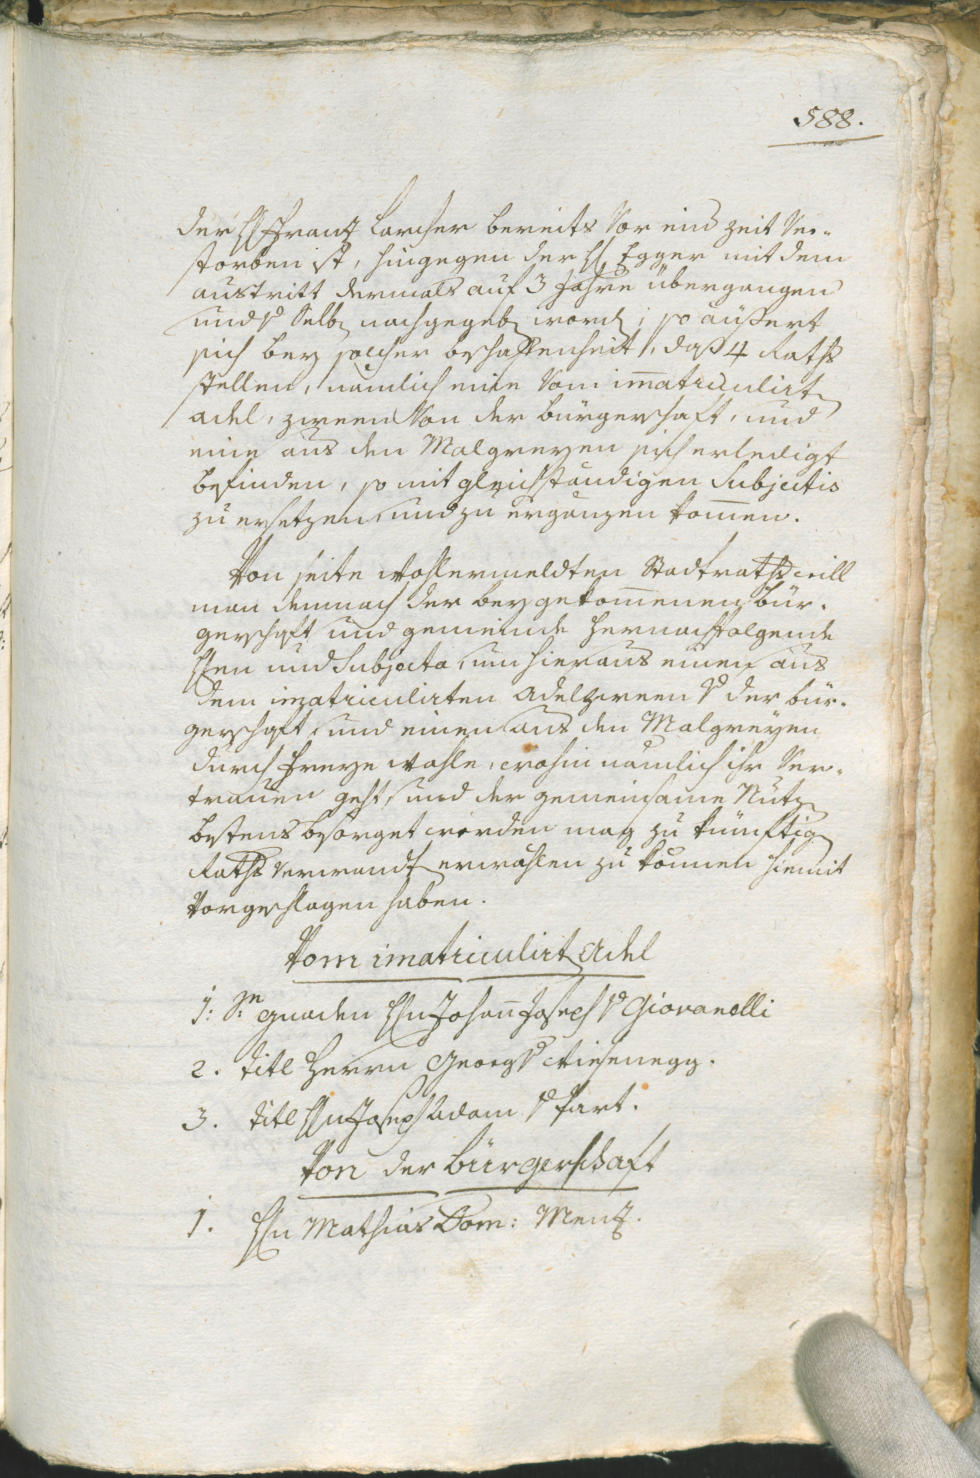 588.
der H Frantz Larcher bereits vor eine zeit ver-
storben ist, hingegen der H Egger mit dem
austritt dermals auf 3 Jahre übergangen
und selb nachgegeb word; so äußert
sich bey solcher beschaffenheit, daß 4 Raths
stellen, nämlich eine vom im̅atriculirt
adel, zween von der bürgerschaft, und
eine aus den Malgreyen sich erledigt
befinden, so mit gleichständigen Subjectis
zu ersetzen, und zu ergänzen kom̅en.
Von seite wohlermeldten Stadtraths will
man demnach der beygekom̅enen bür-
gerschaft und gemeinde hernachfolgende
Hen und Subjecta, um hieraus einen aus
dem im̅atriculirten Adel, zween der bür-
gerschaft, und einen aus den Malgreyen
durch freye wahle, wohin nämlich ihr ver-
trauen geht, und der gemeinsame Nutz
bestens besorget werden mag zu künftig
Raths verwandt erwählen zu können hiemit
vorgeschlagen haben.
Vom imatriculirt Adel
1: Sr. gnaden Hn Johan̅ Joseph v Giovanelli
2. titl Herrn Georg v Wisenegg.
3. titl Hn Joseph Adam v
Von der bürgerschaft
1. Hn Mathias Dom: Menz.